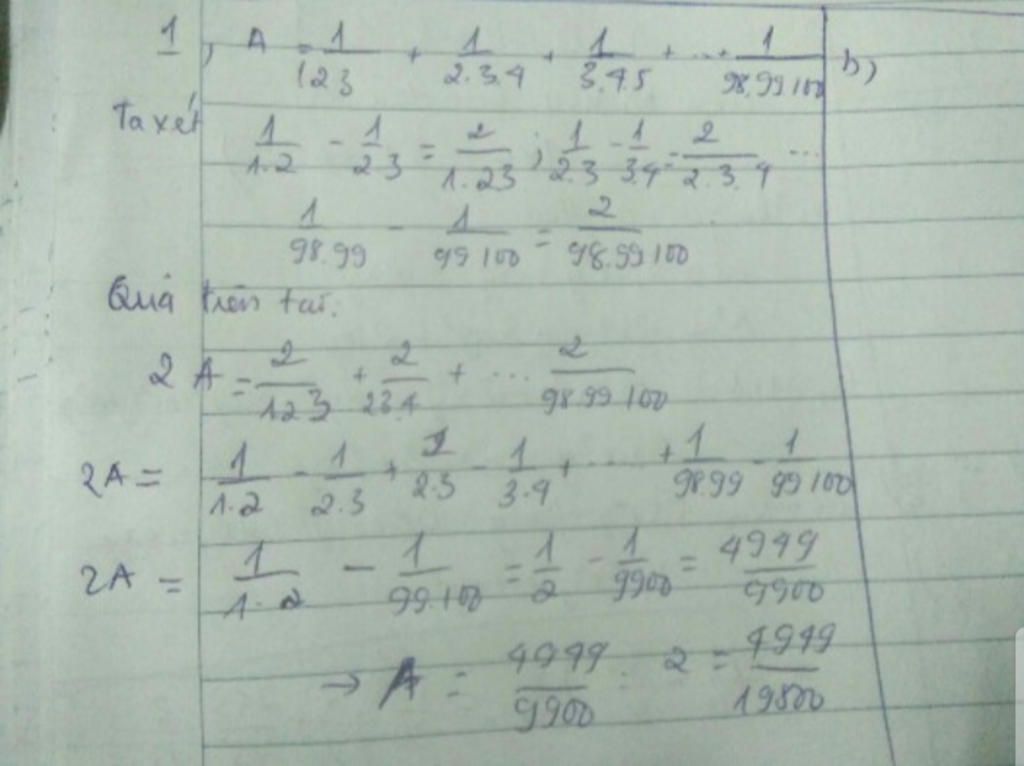 1, A = 1/123 + 1/2.3.4 + 1/3.4.5 + ... + 1/98.99.100 b)
Ta xét 1/1.2 - 1/2.3 = 2/1.23 ; 1/2.3 - 1/3.4 = 2/2.3.4 ...
1/98.99 - 1/99100 = 2/98.99.100
Quá trên ta:
2A = 2/123 + 2/23.4 + ... 2/98.99.100
2A = 1/1.2 - 1/2.3 + 1/2.3 - 1/3.4 + ..... + 1/98.99 - 1/99100
2A = 1/1.2 - 1/99.100 = 1/2 - 1/9900 = 4949/9900
→ A = 4949/9900 : 2 = 4949/19800